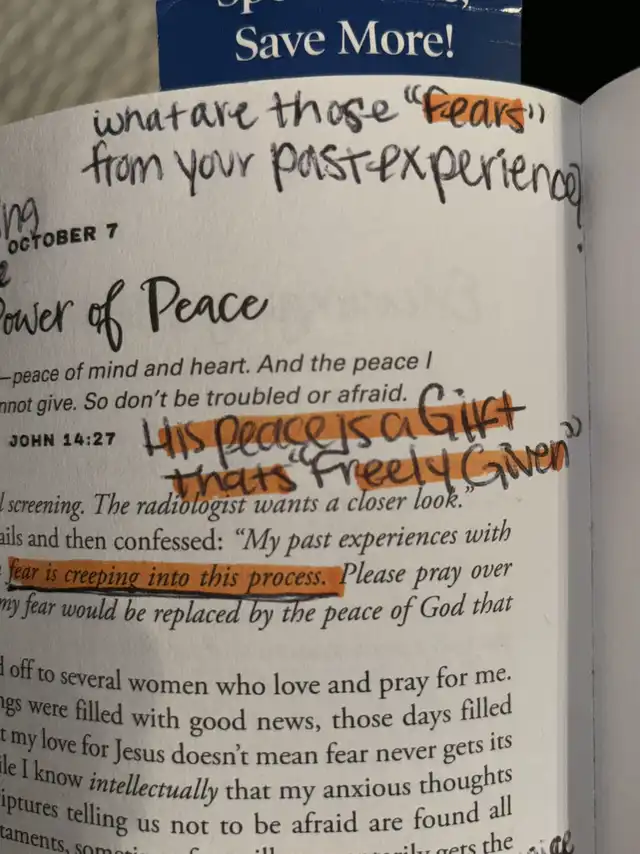 Save More!
what are those "Fears"
from your past experience?
ng
OCTOBER 7
Power of Peace
—peace of mind and heart. And the peace I
nnot give. So don't be troubled or afraid.
JOHN 14:27
His peace is a Gift
thats "Freely Given"
l screening. The radiologist wants a closer look."
ails and then confessed: "My past experiences with
fear is creeping into this process. Please pray over
my fear would be replaced by the peace of God that
d off to several women who love and pray for me.
ngs were filled with good news, those days filled
t my love for Jesus doesn't mean fear never gets its
ile I know intellectually that my anxious thoughts
iptures telling us not to be afraid are found all
taments,
gets the